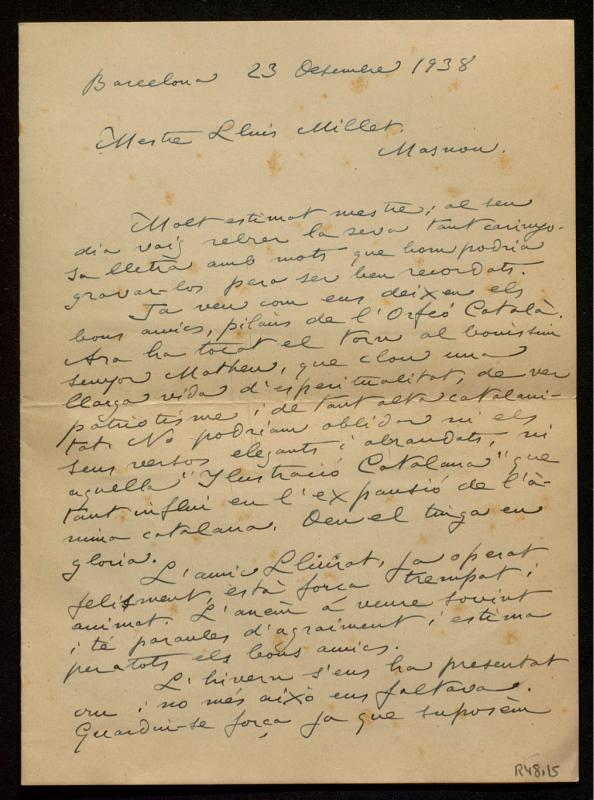 Barcelona 23 Desembre 1938
Mestre Lluis Millet.
Masnou.
Molt estimat mestre; al seu
dia vaig rebrer la seva tant carinyo-
sa lletra amb mots que hom podria
gravar-los pera ser ben recordats.
Ja veu com ens deixen els
bons amics, pilans de l'Orfeó Català.
Ara ha tocat el torn al boníssim
senyor Matheu, que clou una
llarga vida d'esperitualitat, de ver
patriotisme i de tant alta catalani-
tat. No podríam oblidar ni els
seus versos elegants i abrandats, ni
aquella "Ilustració Catalana" que
tant influí en l'expansió de l'à-
nima catalana. Deu el tinga en
gloria.
L'amic Lliurat, ja operat
felisment, està força trempat i
animat. L'aném à veure sovint
i té paraules d'agraiment i estima
pera tots els bons amics.
L'hivern s'ens ha presentat
cru i no més aixó ens faltava.
Guardin-se força ja que suposèm
R48,15